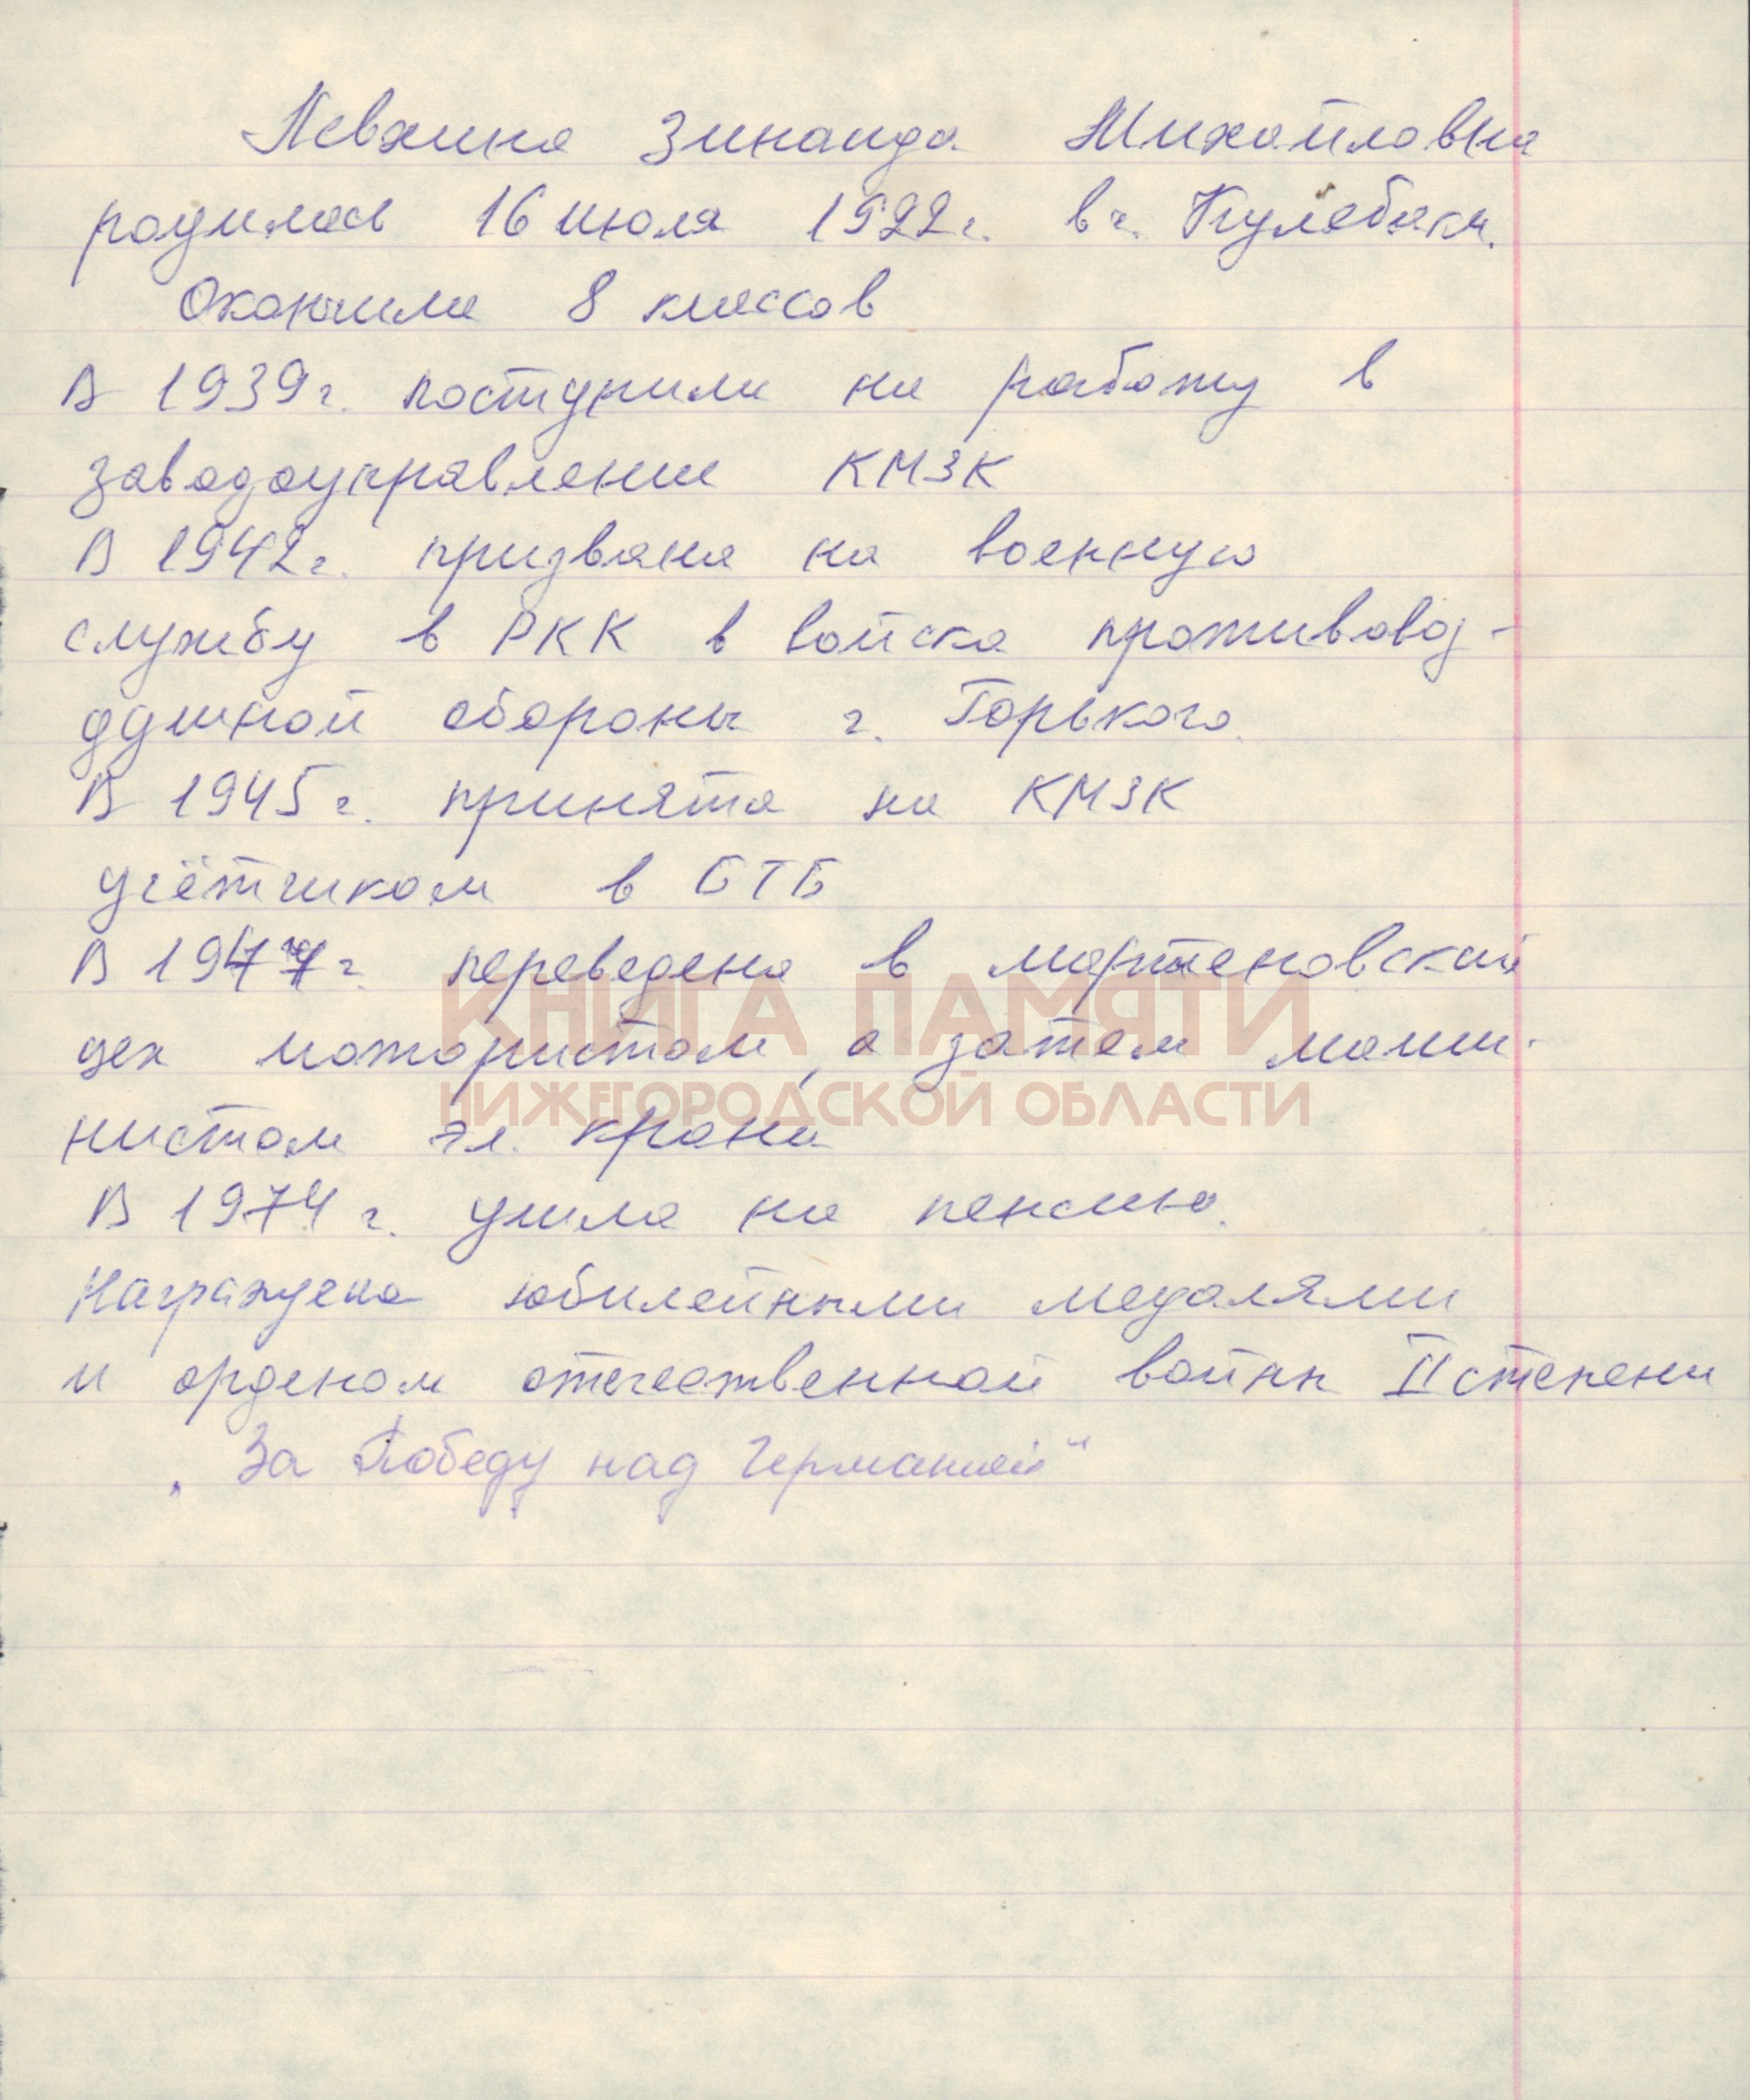 Левхина Зинаида Михайловна
родилась 16 июля 1922 г. в г. Кулебаки.
Окончила 8 классов
В 1939 г. поступила на работу в
заводоуправление КМЗК
В 1942 г. призвана на военную
службу в РКК в войска противовоз-
душной обороны г. Горького.
В 1945 г. принята на КМЗК
учётчиком в БТБ
В г. переведена в мартеновский
КНИГА ПАМЯТИ
цех мотористом, а затем маши-
НИЖЕГОРОДСКОЙ ОБЛАСТИ
нистом эл. крана
В 1974 г. ушла на пенсию.
Награждена юбилейными медалями
и орденом отечественной войны II степени
„За Победу над Германией"